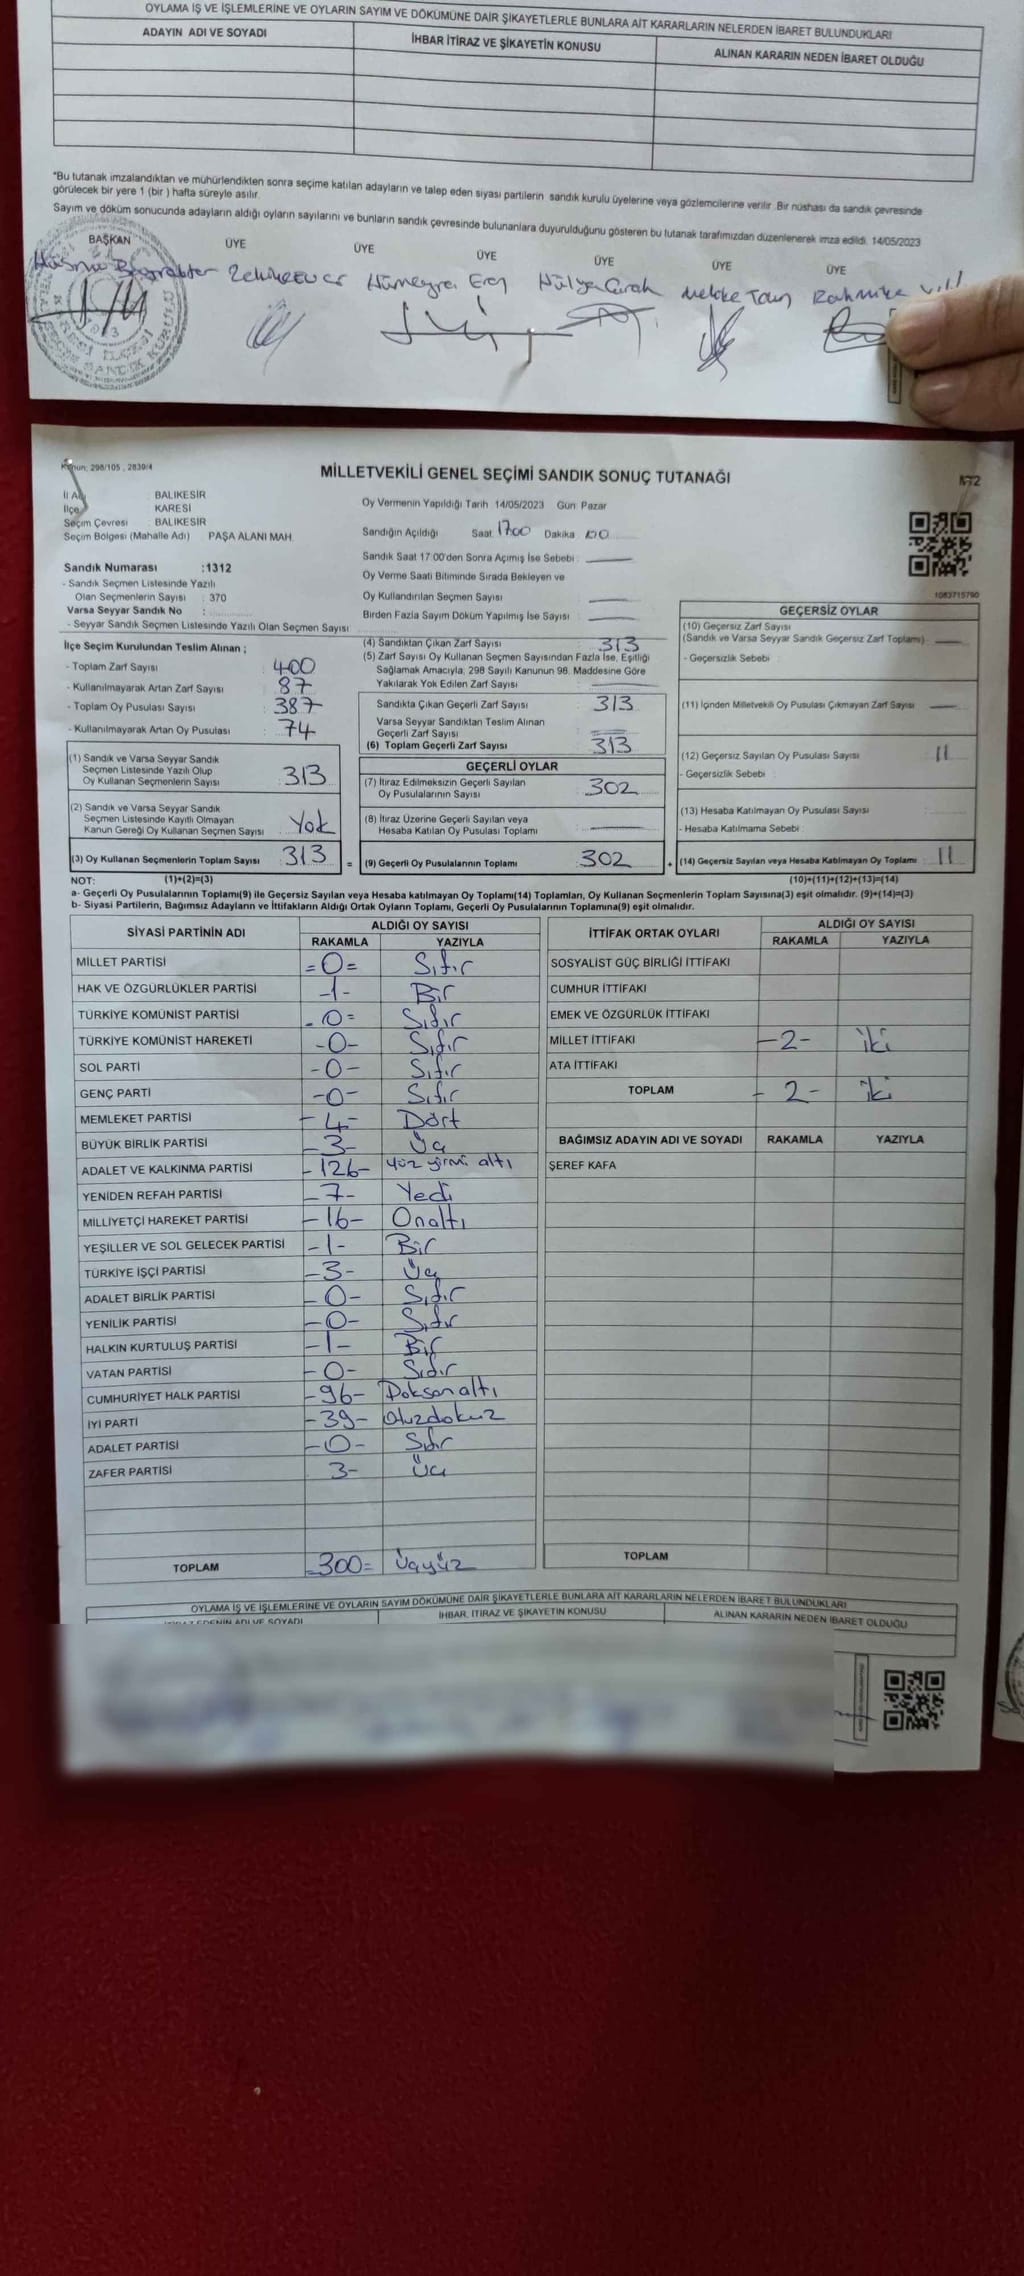 OYLAMA İŞ VE İŞLEMLERİNE VE OYLARIN SAYIM VE DÖKÜMÜNE DAİR ŞİKAYETLERLE BUNLARA AİT KARARLARIN NELERDEN İBARET BULUNDUKLARI
ADAYIN ADI VE SOYADI İHBAR İTİRAZ VE ŞİKAYETİN KONUSU ALINAN KARARIN NEDEN İBARET OLDUĞU
*Bu tutanak imzalandıktan ve mühürlendikten sonra seçime katılan adayların ve talep eden siyasi partilerin sandık kurulu üyelerine veya gözlemcilerine verilir. Bir nüshası da sandık çevresinde
görülecek bir yere 1 (bir ) hafta süreyle asılır.
Sayım ve döküm sonucunda adayların aldığı oyların sayılarını ve bunların sandık çevresinde bulunanlara duyurulduğunu gösteren bu tutanak tarafımızdan düzenlenerek imza edildi. 14/05/2023
BAŞKAN ÜYE ÜYE ÜYE ÜYE ÜYE ÜYE
Hümeyra Eren Hülya
Kanun: 298/105 , 2839/4
MİLLETVEKİLİ GENEL SEÇİMİ SANDIK SONUÇ TUTANAĞI
İl Adı : BALIKESİR
İlçe : KARESİ
Seçim Çevresi : BALIKESİR
Seçim Bölgesi (Mahalle Adı) PAŞA ALANI MAH.
Oy Vermenin Yapıldığı Tarih 14/05/2023 Gün: Pazar
Sandığın Açıldığı Saat 17:00 Dakika 00
Sandık Saat 17:00'den Sonra Açımış İse Sebebi :
Oy Verme Saati Bitiminde Sırada Bekleyen ve
Oy Kullandırılan Seçmen Sayısı :
Birden Fazla Sayım Döküm Yapılmış İse Sayısı :
1083715790
Sandık Numarası :1312
- Sandık Seçmen Listesinde Yazılı
Olan Seçmenlerin Sayısı : 370
Varsa Seyyar Sandık No :
- Seyyar Sandık Seçmen Listesinde Yazılı Olan Seçmen Sayısı :
İlçe Seçim Kurulundan Teslim Alınan ;
- Toplam Zarf Sayısı : 400
- Kullanılmayarak Artan Zarf Sayısı : 87
- Toplam Oy Pusulası Sayısı : 387
- Kullanılmayarak Artan Oy Pusulası : 74
(1) Sandık ve Varsa Seyyar Sandık
Seçmen Listesinde Yazılı Olup
Oy Kullanan Seçmenlerin Sayısı : 313
(2) Sandık ve Varsa Seyyar Sandık
Seçmen Listesinde Kayıtlı Olmayan
Kanun Gereği Oy Kullanan Seçmen Sayısı : Yok
(3) Oy Kullanan Seçmenlerin Toplam Sayısı : 313 =
(4) Sandıktan Çıkan Zarf Sayısı : 313
(5) Zarf Sayısı Oy Kullanan Seçmen Sayısından Fazla İse, Eşitliği
Sağlamak Amacıyla, 298 Sayılı Kanunun 98. Maddesine Göre
Yakılarak Yok Edilen Zarf Sayısı :
Sandıkta Çıkan Geçerli Zarf Sayısı : 313
Varsa Seyyar Sandıktan Teslim Alınan
Geçerli Zarf Sayısı :
(6) Toplam Geçerli Zarf Sayısı : 313
GEÇERLİ OYLAR
(7) İtiraz Edilmeksizin Geçerli Sayılan
Oy Pusulalarının Sayısı : 302
(8) İtiraz Üzerine Geçerli Sayılan veya
Hesaba Katılan Oy Pusulası Toplamı :
(9) Geçerli Oy Pusulalarının Toplamı : 302 +
GEÇERSİZ OYLAR
(10) Geçersiz Zarf Sayısı :
(Sandık ve Varsa Seyyar Sandık Geçersiz Zarf Toplamı)
- Geçersizlik Sebebi :
(11) İçinden Milletvekili Oy Pusulası Çıkmayan Zarf Sayısı :
(12) Geçersiz Sayılan Oy Pusulası Sayısı : 11
- Geçersizlik Sebebi :
(13) Hesaba Katılmayan Oy Pusulası Sayısı :
- Hesaba Katılmama Sebebi :
(14) Geçersiz Sayılan veya Hesaba Katılmayan Oy Toplamı : 11
NOT: (1)+(2)=(3) (10)+(11)+(12)+(13)=(14)
a- Geçerli Oy Pusulalarının Toplamı(9) ile Geçersiz Sayılan veya Hesaba katılmayan Oy Toplamı(14) Toplamları, Oy Kullanan Seçmenlerin Toplam Sayısına(3) eşit olmalıdır. (9)+(14)=(3)
b- Siyasi Partilerin, Bağımsız Adayların ve İttifakların Aldığı Ortak Oyların Toplamı, Geçerli Oy Pusulalarının Toplamına(9) eşit olmalıdır.
SİYASİ PARTİNİN ADI ALDIĞI OY SAYISI
RAKAMLA YAZIYLA
MİLLET PARTİSİ =0= Sıfır
HAK VE ÖZGÜRLÜKLER PARTİSİ -1- Bir
TÜRKİYE KOMÜNİST PARTİSİ -0= Sıfır
TÜRKİYE KOMÜNİST HAREKETİ -0- Sıfır
SOL PARTİ -0- Sıfır
GENÇ PARTİ -0- Sıfır
MEMLEKET PARTİSİ -4- Dört
BÜYÜK BİRLİK PARTİSİ -3- Üç
ADALET VE KALKINMA PARTİSİ -126- Yüz yirmi altı
YENİDEN REFAH PARTİSİ -7- Yedi
MİLLİYETÇİ HAREKET PARTİSİ -16- Onaltı
YEŞİLLER VE SOL GELECEK PARTİSİ -1- Bir
TÜRKİYE İŞÇİ PARTİSİ -3- Üç
ADALET BİRLİK PARTİSİ -0- Sıfır
YENİLİK PARTİSİ -0- Sıfır
HALKIN KURTULUŞ PARTİSİ -1- Bir
VATAN PARTİSİ -0- Sıfır
CUMHURİYET HALK PARTİSİ -96- Doksanaltı
İYİ PARTİ -39- Otuzdokuz
ADALET PARTİSİ -0- Sıfır
ZAFER PARTİSİ 3- Üç
TOPLAM =300= Üçyüz
İTTİFAK ORTAK OYLARI ALDIĞI OY SAYISI
RAKAMLA YAZIYLA
SOSYALİST GÜÇ BİRLİĞİ İTTİFAKI
CUMHUR İTTİFAKI
EMEK VE ÖZGÜRLÜK İTTİFAKI
MİLLET İTTİFAKI -2- iki
ATA İTTİFAKI
TOPLAM - 2- iki
BAĞIMSIZ ADAYIN ADI VE SOYADI RAKAMLA YAZIYLA
ŞEREF KAFA
TOPLAM
OYLAMA İŞ VE İŞLEMLERİNE VE OYLARIN SAYIM VE DÖKÜMÜNE DAİR ŞİKAYETLERLE BUNLARA AİT KARARLARIN NELERDEN İBARET BULUNDUKLARI
İTİRAZ EDENİN ADI VE SOYADI İHBAR, İTİRAZ VE ŞİKAYETİN KONUSU ALINAN KARARIN NEDEN İBARET OLDUĞU